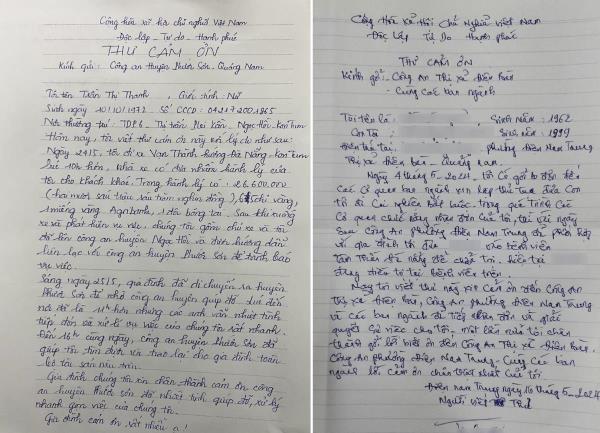 Cộng hòa xã hội chủ nghĩa Việt Nam
Độc lập - Tự do - Hạnh phúc
THƯ CẢM ƠN
Kính gửi: Công an Huyện Phước Sơn - Quảng Nam
Tôi tên Trần Thị Thanh, Giới tính: Nữ
Sinh ngày 10/10/1972. Số CCCD: 042172001865
Nơi thường trú: TDP6 - Thị trấn Plei Kần - Ngọc Hồi - Kon Tum
Hôm nay, tôi viết thư cảm ơn này với lý do như sau:
Ngày 24/5, tôi đi xe Vạn Thành hướng Đà Nẵng - Kon Tum
lúc 10h hơn, Nhà xe có đưa nhầm hành lý của
tôi cho khách khác. Trong hành lý có: 26.600.000
(hai mươi sáu triệu sáu trăm nghìn đồng), chỉ vàng,
1 miếng vàng Agribank, 1 đôi bông tai. Sau khi xuống
xe và phát hiện sự việc, chúng tôi gồm chủ xe và tôi
đã lên công an huyện Ngọc Hồi và được hướng dẫn
liên lạc với công an huyện Phước Sơn để trình báo
vụ việc.
Sáng ngày 25/5, gia đình đã di chuyển ra huyện
Phước Sơn để nhờ công an huyện giúp đỡ. Lúc đến
nơi đã là 11h hơn nhưng các anh vẫn nhiệt tình
tiếp đón và xử lí vụ việc của chúng tôi rất nhanh.
Đến 16h cùng ngày, công an huyện Phước Sơn đã
giúp tôi tìm được và trao lại cho gia đình toàn
bộ tài sản nêu trên.
Gia đình chúng tôi xin chân thành cảm ơn công
an huyện Phước Sơn đã nhiệt tình giúp đỡ, xử lý
nhanh gọn việc của chúng tôi.
Gia đình cảm ơn rất nhiều ạ!
Cộng Hòa Xã Hội Chủ Nghĩa Việt Nam
Độc Lập Tự Do Hạnh phúc
THƯ CẢM ƠN
Kính gởi - Công An Thị xã Điện Bàn
- Cùng các ban ngành
Tôi tên là: Sinh năm: 1962
Con Tôi: Sinh năm: 1999
Điện Nam Trung
Thị xã Điện Bàn - Quảng Nam.
Ngày 4 tháng 5 - 2024, tôi có gởi đơn đến
các Cơ quan ban ngành xin hủy thủ tục đưa Con
tôi đi Cai nghiện bắt buộc. trong quá trình các
Cơ quan chức năng nhận đơn của tôi, tại vài ngày
sau Công An phường Điện Nam Trung đã phối hợp
với gia đình tôi đưa vào bệnh viện
Tâm Thần Đà Nẵng để chữa trị. hiện tại
đang điều trị tại bệnh viện trên.
Nay tôi viết thư này xin cảm ơn đến Công An
Thị xã Điện Bàn, Công An phường Điện Nam Trung
và các ban ngành đã tiếp nhận đơn và giải
quyết sự việc cho tôi. một lần nữa tôi chân
thành gởi lời biết ơn đến Công An Thị xã Điện Bàn,
Công An phường Điện Nam Trung - Cùng các ban
ngành lời cảm ơn chân thành nhất của tôi.
Điện Nam Trung ngày 16 tháng 5 - 2024
Người viết Thư